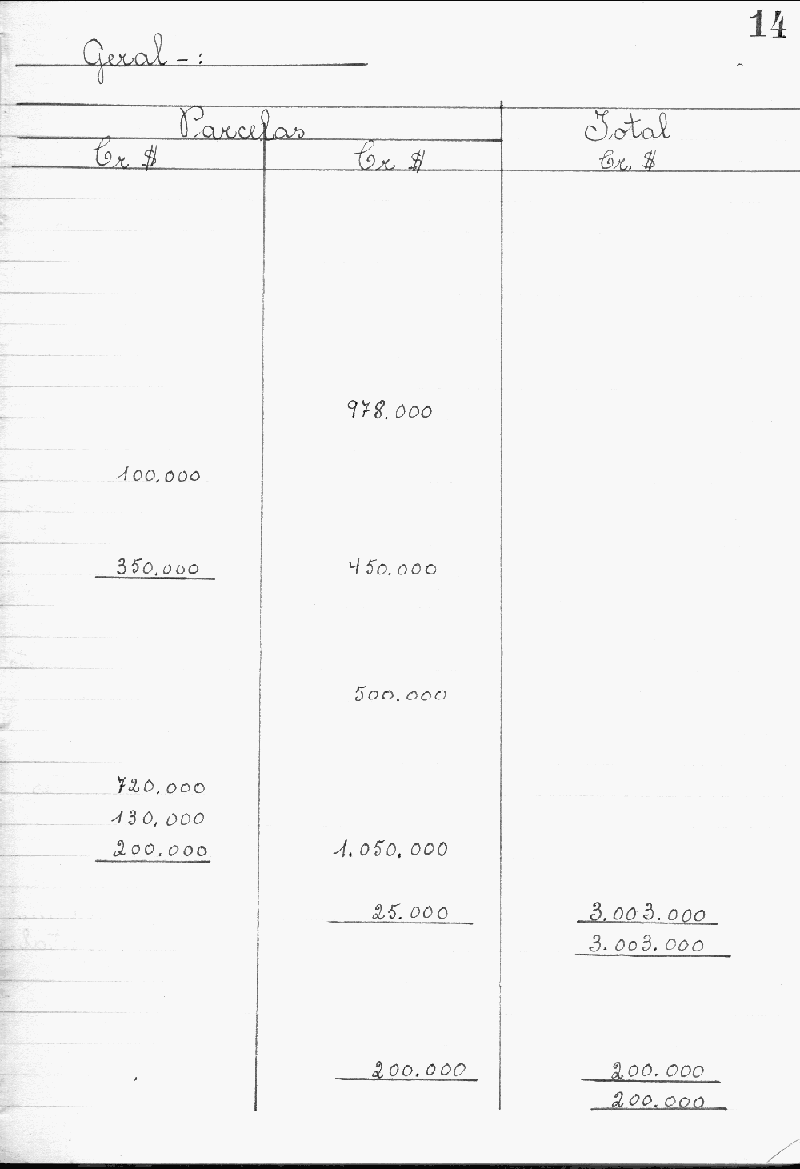 14
Geral - :
Parcelas Total
Cr $ Cr $ Cr. $
978.000
100.000
350.000 450.000
500.000
720.000
130.000
200.000 1.050.000
25.000 3.003.000
3.003.000
200.000 200.000
200.000